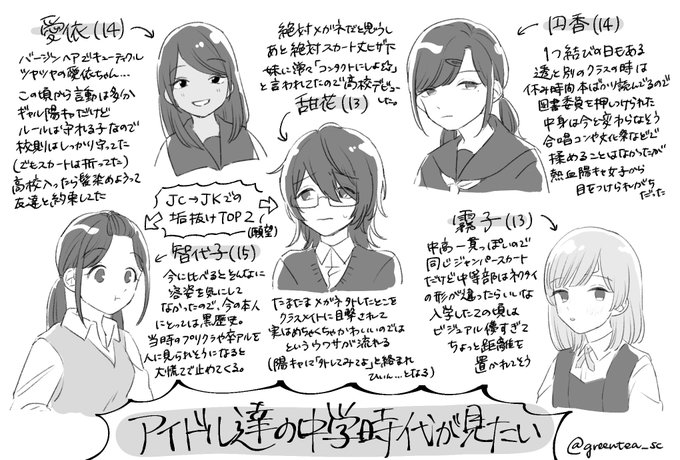 愛依(14)
バージンヘアでキューティクル
ツヤツヤの愛依ちゃん…
この頃から言動は多分
ギャル陽キャだけど
ルールは守れる子なので
校則はしっかり守ってた
(でもスカートは折ってた)
高校入ったら髪染めようって
友達と約束してた
絶対メガネだと思うし
あと絶対スカート丈ヒザ下
妹に常々「コンタクトにしよ」
と言われてたので高校デビュー
した。
甜花(13)
円香(14)
1つ結びの日もある
透と別のクラスの時は
休み時間本ばかり読んでるので
図書委員を押しつけられた
中身は今と変わらなそう
合唱コンや文化祭などで
揉めることはなかったが
熱血陽キャ女子から
目をつけられがち
だった
JC→JKでの
垢抜けTOP2
(願望)
智代子(15)
今に比べるとそんなに
容姿を気にして
なかったので、今の本人
にとっては黒歴史。
当時のプリクラや卒アルを
人に見られそうになると
大慌てで止めてくる。
たまたまメガネ外したとこを
クラスメイトに目撃されて
実はめちゃくちゃかわいいのでは
というウワサが流れる
(陽キャに「外してみてよ」と絡まれ
ひぃん…となる)
霧子(13)
中高一貫っぽいので
同じジャンパースカート
だけど中等部はネクタイ
の形が違ったらいいな
入学した2の頃は
ビジュアル優すぎて
ちょっと距離を
置かれてそう
アイドル達の中学時代が見たい
@greentea_sc